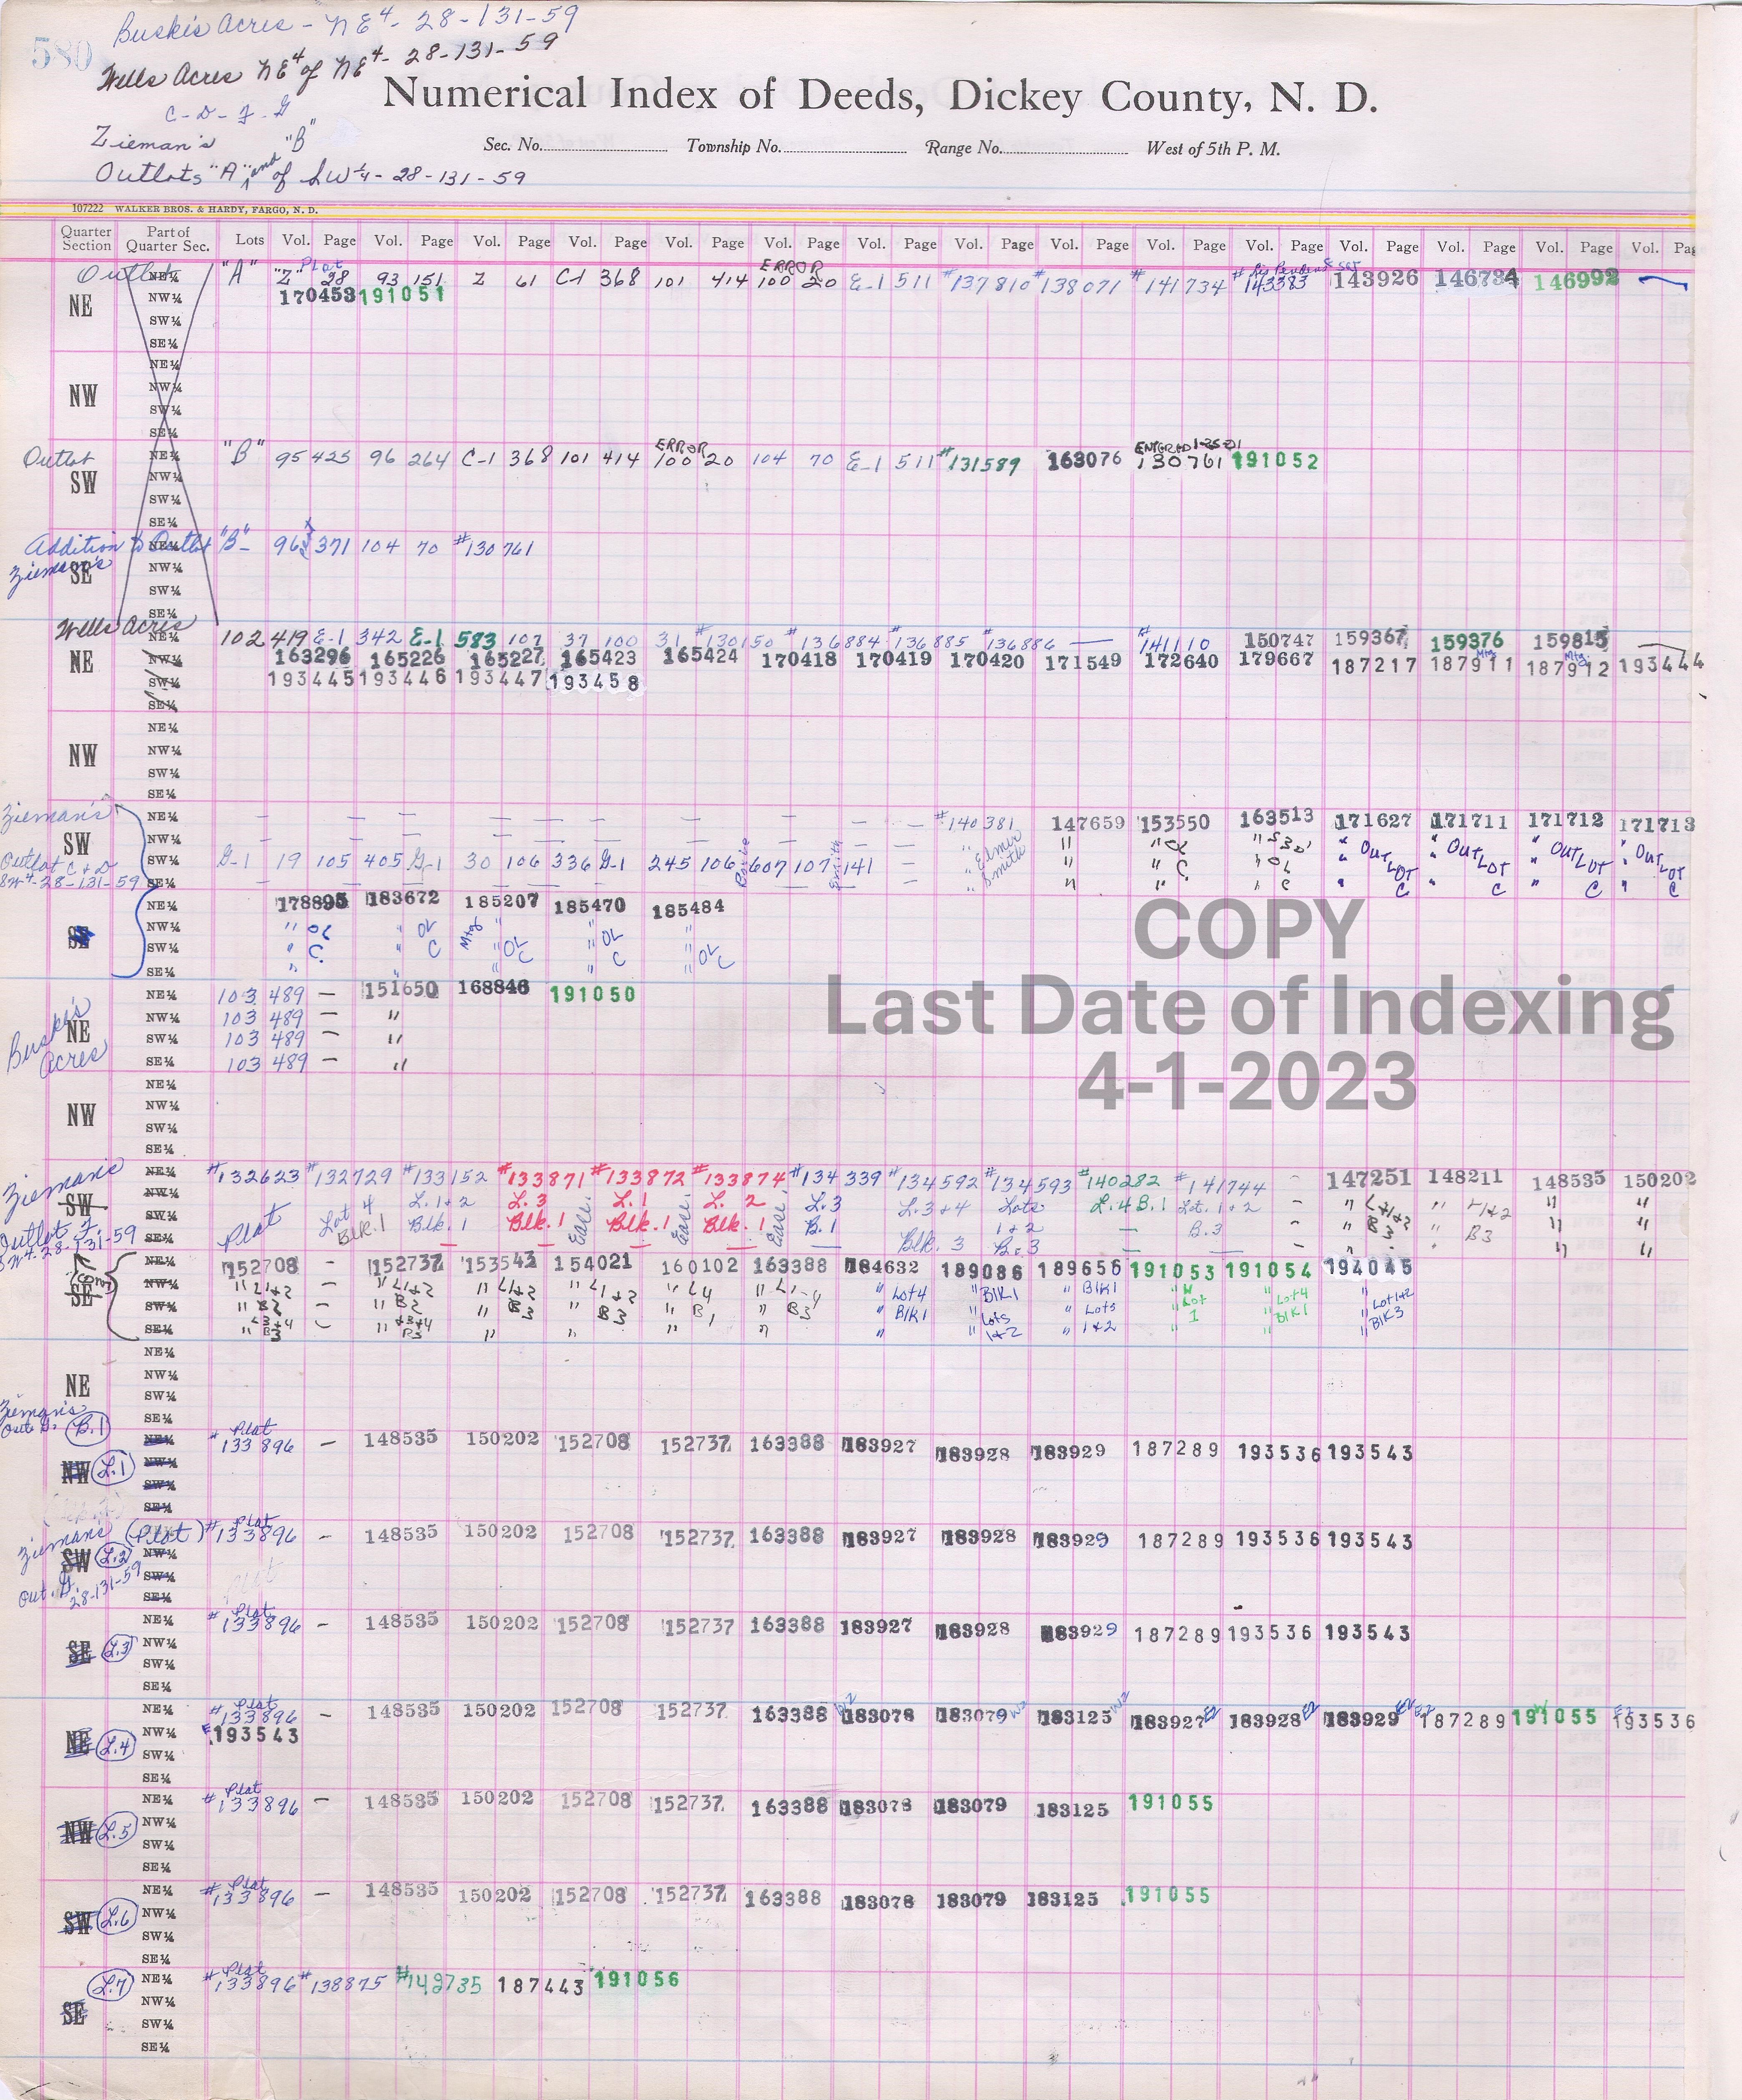 580
Buskis Acres - NE4- 28-131-59
Wells Acres NE4 of NE4- 28-131-59
C-D-F-G
Zieman's "B"
Outlots "A" and of SW¼- 28-131-59
Numerical Index of Deeds, Dickey County, N. D.
Sec. No. Township No. Range No. West of 5th P. M.
107222 WALKER BROS. & HARDY, FARGO, N. D.
Quarter Section Part of Quarter Sec. Lots Vol. Page Vol. Page Vol. Page Vol. Page Vol. Page Vol. Page Vol. Page Vol. Page Vol. Page Vol. Page Vol. Page Vol. Page Vol. Page Vol. Page Vol.
Plat ERROR
Outlot NE¼ "A" "Z" 28 93 151 Z 61 C-1 368 101 414 100 20 E-1 511 #137810 #138071 #141734 #143383 143926 146734 146992
NE NW¼ 170453 191051
SW¼
SE¼
NE¼
NW NW¼
SW¼
SE¼
ERROR ENTERED 1-25-01
Outlot NE¼ "B" 95 425 96 264 C-1 368 101 414 100 20 104 70 E-1 511 #131589 163076 130761 191052
SW NW¼
SW¼
SE¼
Addition to Outlot NE¼ "B" 96 371 104 70 #130761
Zieman's SE NW¼
SW¼
SE¼
Wells Acres NE¼ 102 419 E-1 342 E-1 583 107 37 100 31 #130150 #136884 #136885 #136886 — #141110 150747 159367 159376 159815
NE NW¼ 163296 165226 165227 165423 165424 170418 170419 170420 171549 172640 179667 187217 187911 Mtg 187912 Mtg 193444
SW¼ 193445 193446 193447 193458
SE¼
NE¼
NW NW¼
SW¼
SE¼
Zieman's NE¼ — — — — — — — #140381 147659 153550 163513 171627 171711 171712 171713
SW NW¼ — — — " Elmer Smith " " OL " " OUTLOT " OUTLOT " OUTLOT " OUTLOT
Outlot C + D SW¼ G-1 19 105 405 G-1 30 106 336 G-1 245 106 607 107 141 — " " C " OL
SW4-28-131-59 SE¼ — " " " C " C " C " C " C
NE¼ 178895 183672 185207 185470 185484
SE NW¼ " OL " OL Mtg " " OL "
SW¼ " C. " C " OL C " C " OL C
SE¼ " " " "
Buskis NE¼ 103 489 — 151650 168846 191050
NE NW¼ 103 489 — "
Acres SW¼ 103 489 — "
SE¼ 103 489 — "
NE¼
NW NW¼
SW¼
SE¼
Zieman's NE¼ #132623 #132729 #133152 #133871 #133872 #133874 #134339 #134592 #134593 #140282 #141744 - 147251 148211 148535 150202
SW NW¼ Plat Lot 4 L.1+2 L.3 L.1 L. 2 L.3 L.3+4 Lots L.4 B.1 Lot. 1+2 - " L1+2 " L1+2 " "
Outlot F. SW¼ Blk.1 Blk. 1 Blk. 1 Ease. Blk. 1 Ease. Blk. 1 Ease. B.1 Blk. 3 1+2 — B.3 - " B3 " B3 " "
SW4-28-131-59 SE¼ B. 3 — — - " " " "
NE¼ 152708 - 152737 153543 154021 160102 163388 184632 189086 189656 191053 191054 194045
(cont) SE NW¼ " L1+2 - " L1+2 " L1+2 " L1+2 " L4 " L1-4 " Lot4 " BlK1 " BlK1 " " Lot4 " Lot1+2
SW¼ " B2 - " B2 " B3 " B3 " B1 " B3 " BlK1 " Lots " Lots " Lot " BlK1 " BlK3
SE¼ " L3+4 B3 - " L3+4 B3 " " " " " " 1+2 " 1+2 " 1
NE¼
NE NW¼
SW¼
Zieman's SE¼
Out G. B.1 NE¼ # Plat 133896 — 148535 150202 152708 152737 163388 183927 183928 183929 187289 193536 193543
NW L.1 NW¼
SW¼
SE¼
Ziemans (Plat) # Plat 133896 - 148535 150202 152708 152737 163388 183927 183928 183929 187289 193536 193543
SW L.2 NW¼
Out. G. SW¼
28-131-59 SE¼
NE¼ # Plat 133896 - 148535 150202 152708 152737 163388 183927 183928 183929 187289 193536 193543
SE L.3 NW¼
SW¼
SE¼
NE¼ # Plat 133896 - 148535 150202 152708 152737 163388 W2 183078 183079 W2 183125 W2 183927 E2 183928 E2 183929 E2 187289 E2 191055 193536 E2
NE L.4 NW¼ 193543
SW¼
SE¼
NE¼ # Plat 133896 - 148535 150202 152708 152737 163388 183078 183079 183125 191055
NW L.5 NW¼
SW¼
SE¼
NE¼ # Plat 133896 — 148535 150202 152708 152737 163388 183078 183079 183125 191055
SW L.6 NW¼
SW¼
SE¼
L.7 NE¼ # Plat 133896 #138875 #149735 187443 191056
SE NW¼
SW¼
SE¼
COPY
Last Date of Indexing
4-1-2023